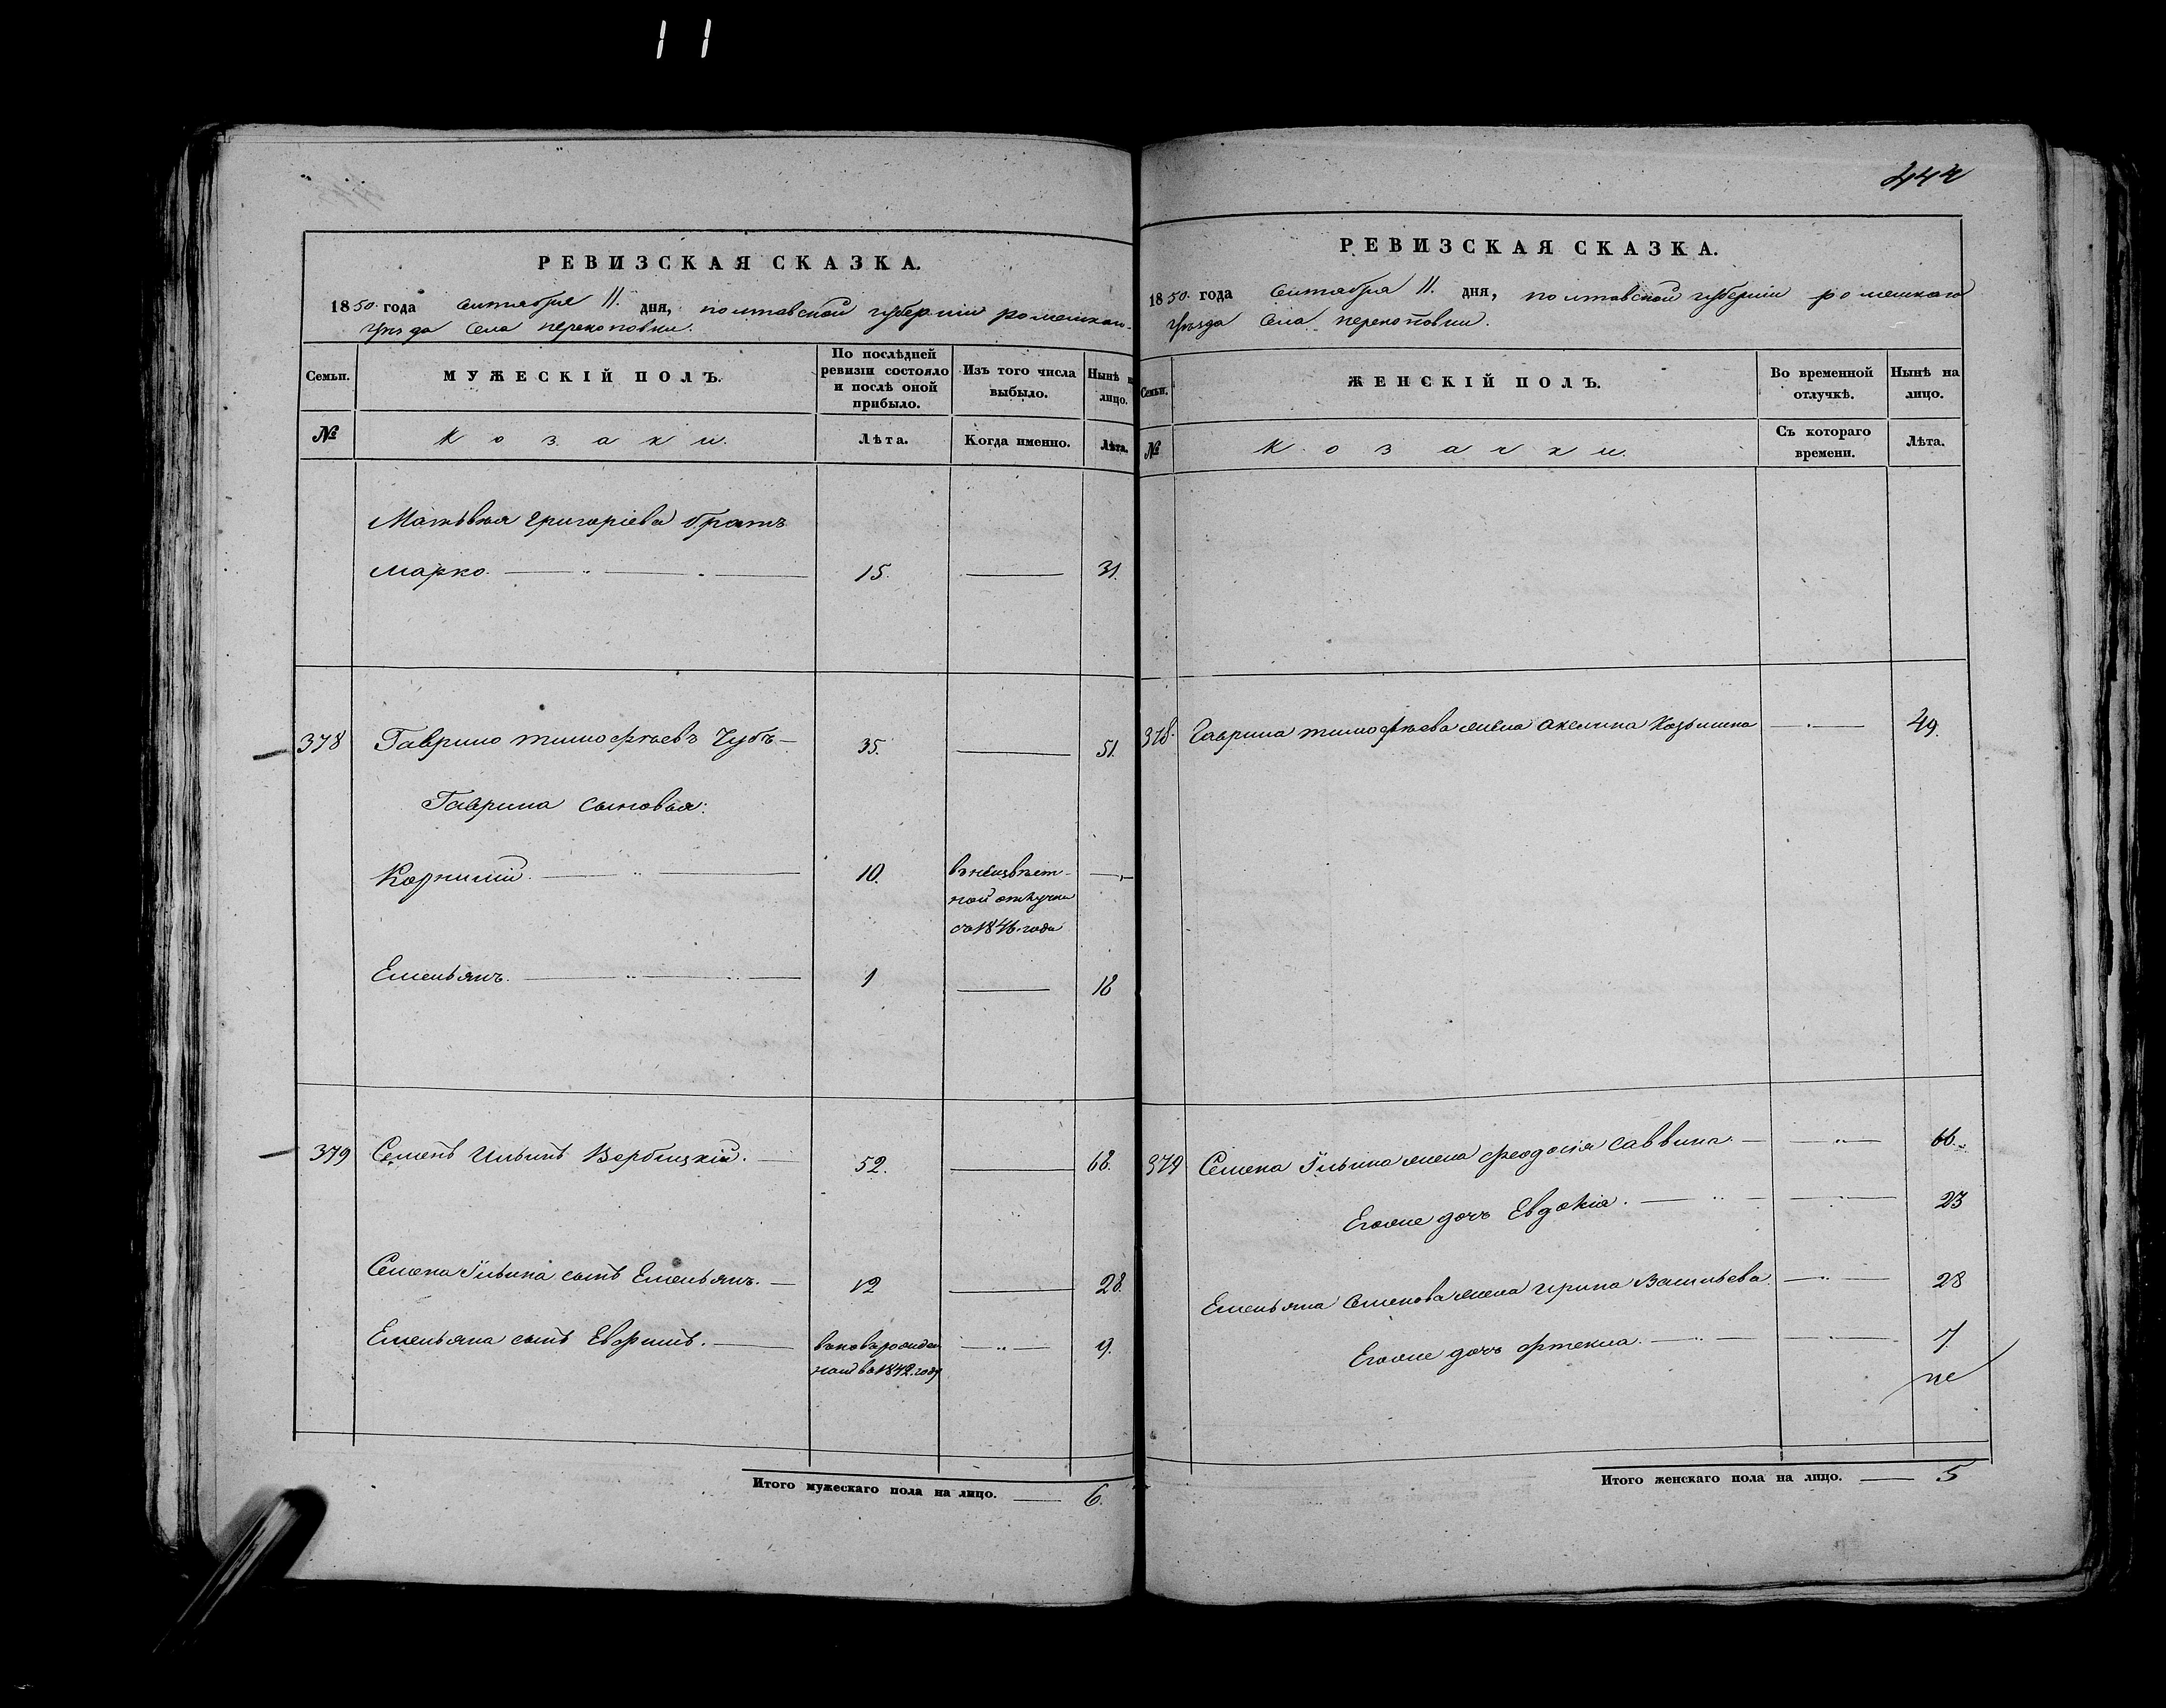 442
РЕВИЗСКАЯ СКАЗКА.
1850. года Сентября 11. дня, полтавской губерніи роменскаго
уѣзда Села перекоповки.
Семьи.
МУЖЕСКІЙ ПОЛЪ.
По послѣдней ревизіи состояло и послѣ оной прибыло.
Изъ того числа выбыло.
Нынѣ н лицо.
№
Козаки.
Лѣта.
Когда именно.
Лѣта.
Матвѣя григоріева братъ
Марко. 15. 31.
378 Гаврило тимофѣевъ Чубъ 35. 51.
Гаврила сыновья:
Корнилій 10. въ неизвѣст-
ной отлучки
со 1846. года
Емельянъ. 1 18
379 Семенъ Ильинъ Вербицкій. 52. 68.
Семена Ильина сынъ Емельянъ. 12 28.
Емельяна сынъ Евфимъ. вновь рожден 9.
ной въ 1842. году
Итого мужескаго пола на лицо. 6.
РЕВИЗСКАЯ СКАЗКА.
1850. года Сентября 11. дня, полтавской губерніи роменскаго
уѣзда Села перекоповки.
Семьи.
ЖЕНСКІЙ ПОЛЪ.
Во временной отлучкѣ.
Нынѣ на лицо.
№
Козачки.
Съ котораго времени.
Лѣта.
378. Гаврила тимофѣева жена Акелина Козьмина 49.
379 Семена Ильина жена феодосія Саввина. 66.
Егоже дочь Евдокія. 23
Емельяна Семенова жена ирина Васильева 28
Егоже дочь фтекла. 7.
Итого женскаго пола на лицо. 5